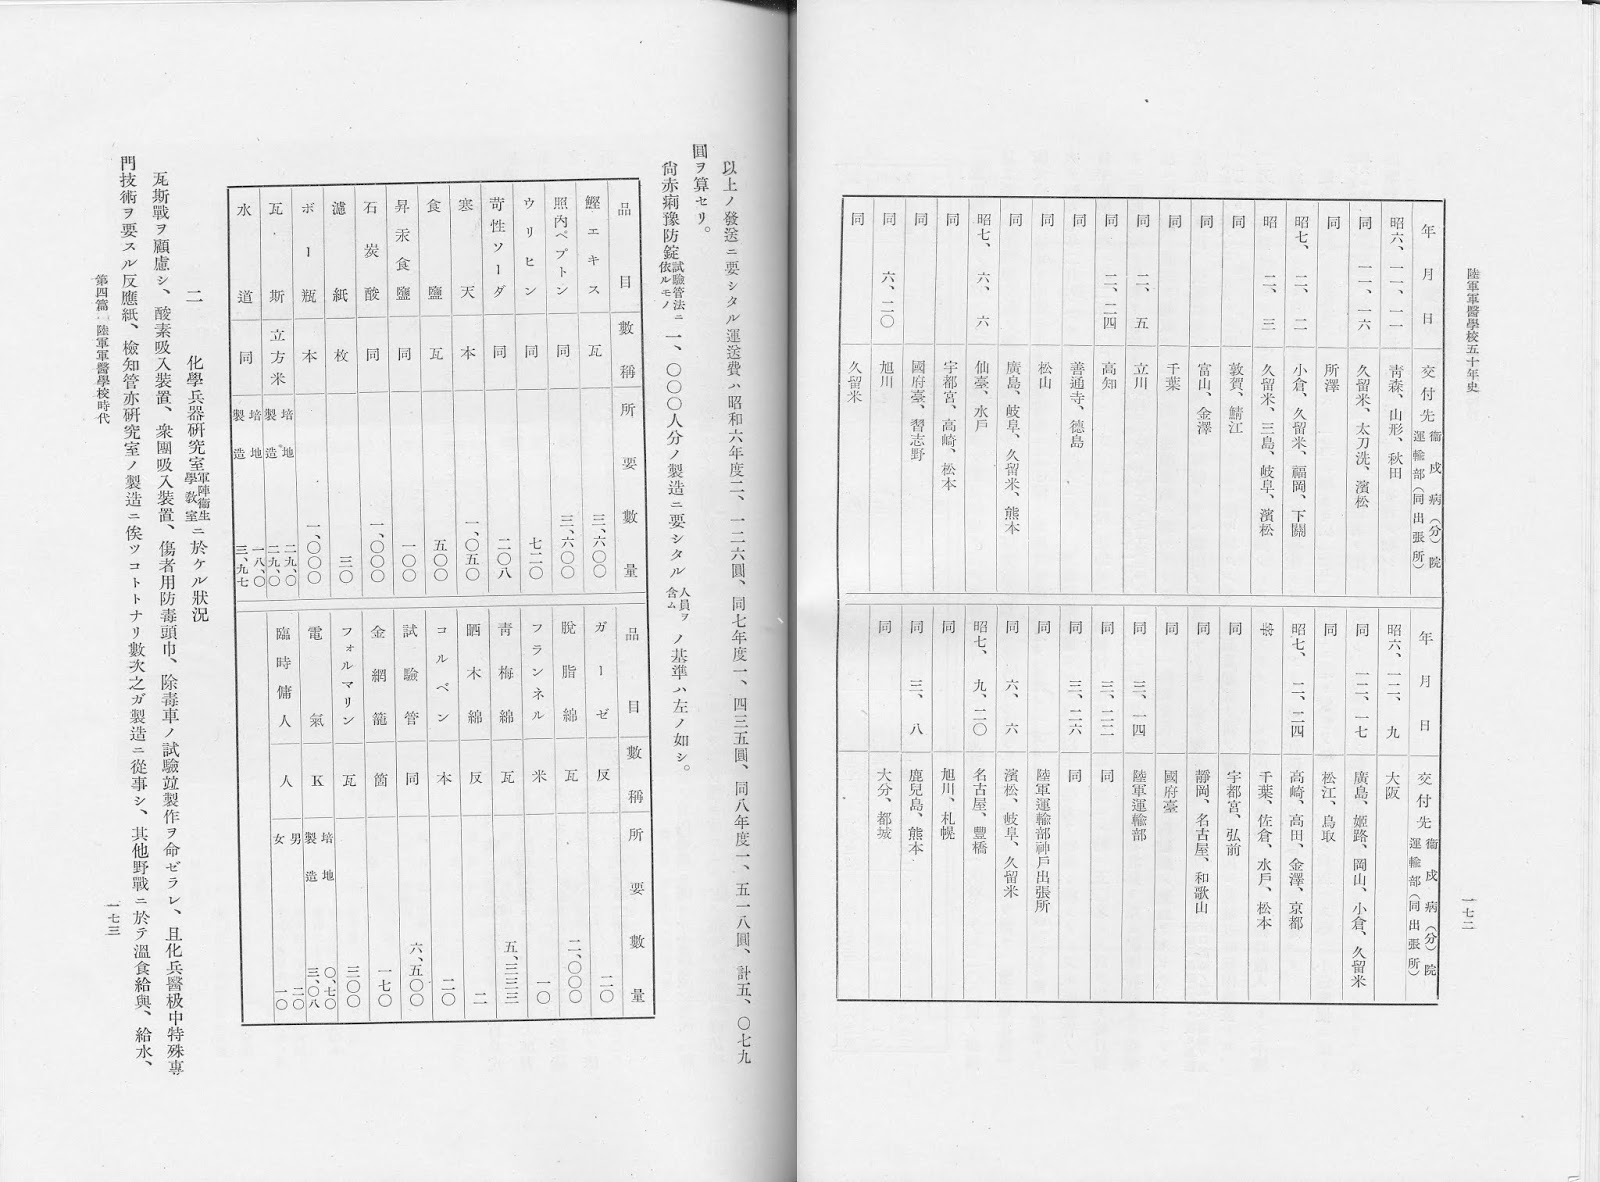 陸軍軍醫學校五十年史
一七二
年月日
交付先 衞戍病(分)院 運輸部(同出張所)
昭六、一一、一一 靑森、山形、秋田
同 一一、一六 久留米、太刀洗、濱松
同 所澤
昭七、二、二 小倉、久留米、福岡、下關
昭 二、三 久留米、三島、岐阜、濱松
同 敦賀、鯖江
同 富山、金澤
同 千葉
同 二、五 立川
同 二、二四 高知
同 善通寺、德島
同 松山
同 廣島、岐阜、久留米、熊本
昭七、六、六 仙臺、水戶
同 宇都宮、高崎、松本
同 國府臺、習志野
同 六、二〇 旭川
同 久留米
年月日
交付先 衞戍病(分)院 運輸部(同出張所)
昭六、一二、九 大阪
同 一二、一七 廣島、姬路、岡山、小倉、久留米
同 松江、鳥取
昭七、二、二四 高崎、高田、金澤、京都
千葉、佐倉、水戶、松本
同 宇都宮、弘前
同 靜岡、名古屋、和歌山
同 國府臺
同 三、一四 陸軍運輸部
同 三、二二 同
同 三、二六 同
同 陸軍運輸部神戶出張所
同 六、六 濱松、岐阜、久留米
昭七、九、二〇 名古屋、豐橋
同 旭川、札幌
同 三、八 鹿兒島、熊本
同 大分、都城
以上ノ發送ニ要シタル運送費ハ昭和六年度二、一二六圓、同七年度一、四三五圓、同八年度一、五一八圓、計五、〇七九
圓ヲ算セリ。
尙赤痢豫防錠試驗管法ニ依ルモノ一、〇〇〇人分ノ製造ニ要シタル人員ヲ含ムノ基準ハ左ノ如シ。
品目 數稱 所要數量
鰹エキス 瓦 三、六〇〇
照內ペプトン 同 三、六〇〇
ウリヒン 同 七二〇
苛性ソーダ 同 二〇八
寒天 本 一、〇五〇
食鹽 瓦 五〇〇
昇汞食鹽 同 一〇〇
石炭酸 同 一、〇〇〇
濾紙 枚 三〇
ボー瓶 本 一、〇〇〇
瓦斯 立方米 培地 二九、〇 製造 二九、〇
水道 同 培地 一八、〇 製造 三、九七
品目 數稱 所要數量
ガーゼ 反 二〇
脫脂綿 瓦 二、〇〇〇
フランネル 米 一〇
靑梅綿 瓦 五、三三三
晒木綿 反 二
コルベン 本 二〇
試驗管 同 六、五〇〇
金網籠 箇 一七〇
フォルマリン 瓦 三〇〇
電氣 K 培地 〇、七〇 製造 三、〇八
臨時傭人 人 男 二〇 女 一〇
二 化學兵器硏究室軍陣衞生學敎室ニ於ケル狀況
瓦斯戰ヲ顧慮シ、酸素吸入裝置、衆團吸入裝置、傷者用防毒頭巾、除毒車ノ試驗竝製作ヲ命ゼラレ、且化兵醫极中特殊專
門技術ヲ要スル反應紙、檢知管亦硏究室ノ製造ニ俟ツコトトナリ數次之ガ製造ニ從事シ、其他野戰ニ於テ溫食給與、給水、
第四篇 陸軍軍醫學校時代
一七三